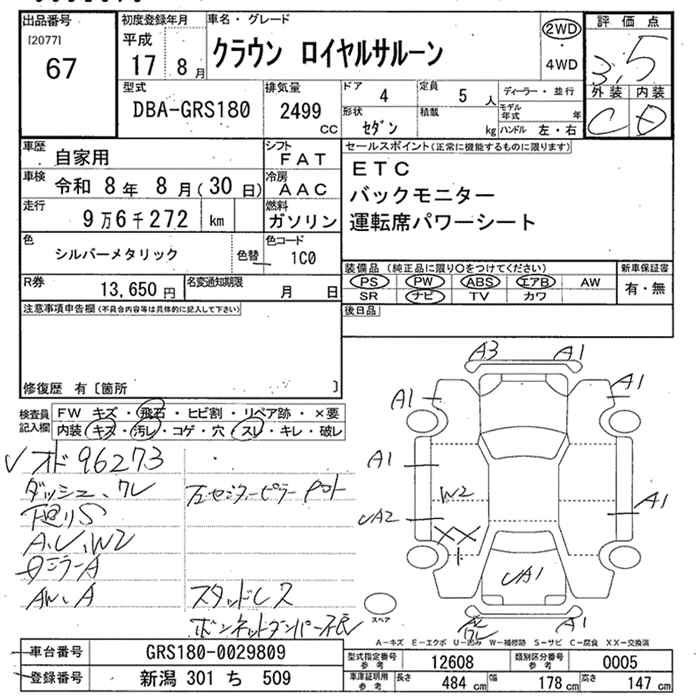 出品番号
[2077]
67
初度登録年月
平成
17 8月
車名・グレード
クラウン ロイヤルサルーン
2WD
・
4WD
評価点
3.5
外装 内装
C D
型式
DBA-GRS180
排気量
2499 cc
ドア 4
定員 5 人
ディーラー・並行
形状 セダン
積載 kg
モデル年式 年
ハンドル 左・右
車歴
自家用
シフト
FAT
車検
令和 8年 8月(30日)
冷房
AAC
走行
9万6千272 km
燃料
ガソリン
色
シルバーメタリック
色替
色コード
1C0
R券
13,650円
名変通知期限
月 日
セールスポイント(正常に機能するものに限ります)
ETC
バックモニター
運転席パワーシート
装備品 (純正品に限り〇をつけてください)
PS PW ABS エアB AW
SR ナビ TV カワ
新車保証書
有・無
後日品
注意事項申告欄(不具合内容等は具体的に記入して下さい)
修復歴 有〔箇所 〕
検査員記入欄
FW キズ・飛石・ヒビ割・リペア跡・×要
内装・キズ・汚レ・コゲ・穴・スレ・キレ・破レ
オド96273
ダッシュ、ワレ
下廻りS
A、U、W2
A
AW、A
左センターピラー
スタッドレス
ボンネットダンパー不良
A3 A1
A1 A1
A1
W2
A2
XX
A1
A1
A1
スペア
A-キズ E-エクボ U-凹み W-補修跡 S-サビ C-腐食 XX-交換済
車台番号
GRS180-0029809
登録番号
新潟 301 ち 509
型式指定番号 参考 12608
類別区分番号 参考 0005
車庫証明用 参考 長さ 484 cm 幅 178 cm 高さ 147 cm